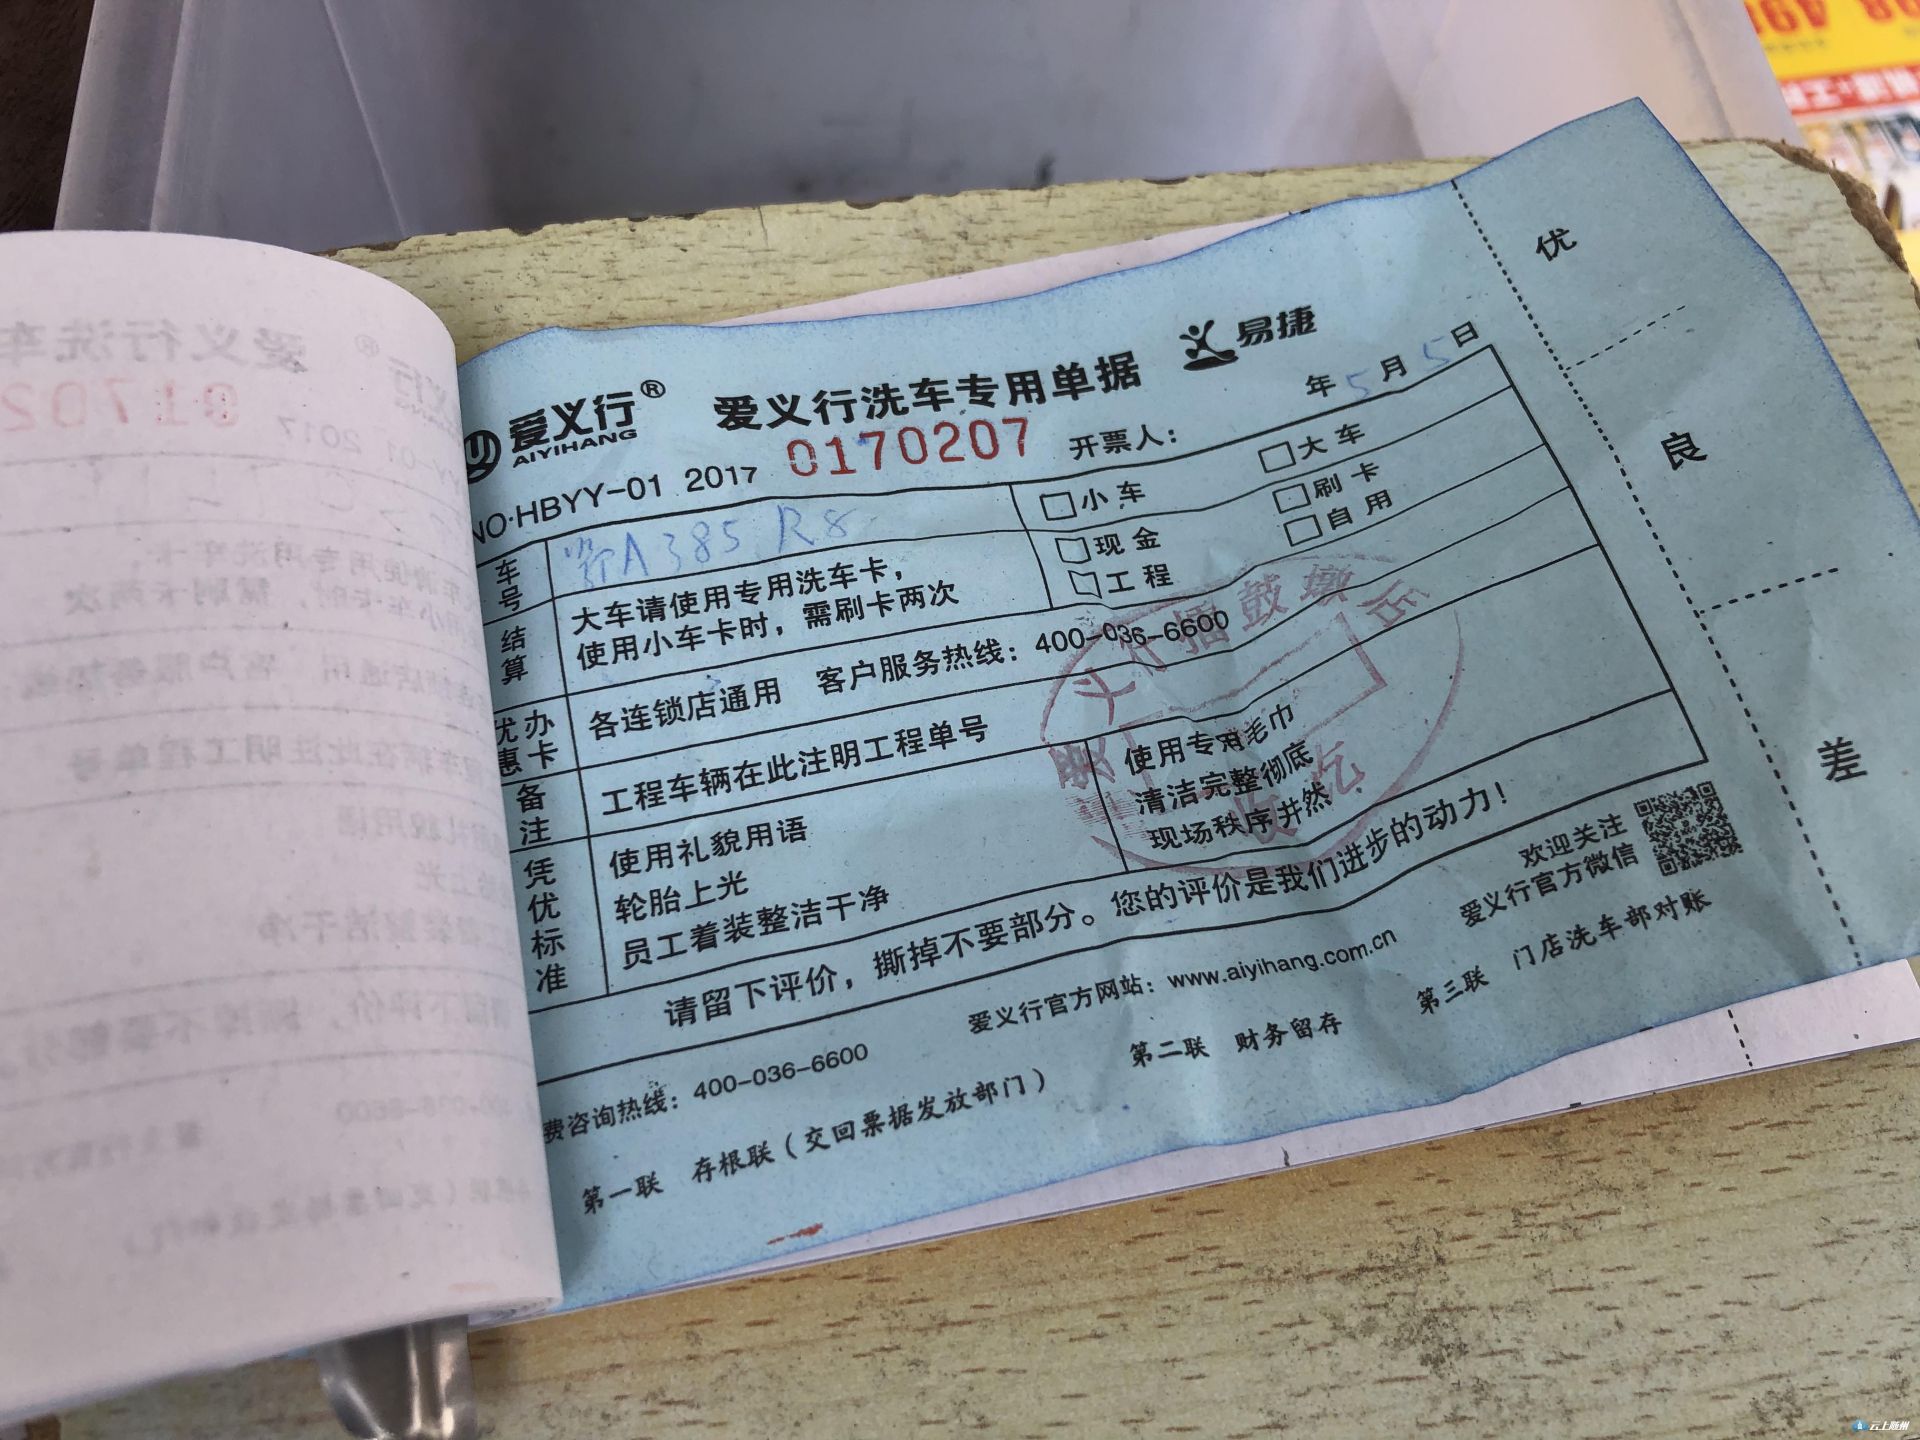 爱义行®
AIYIHANG
爱义行洗车专用单据
易捷
NO·HBYY-01 2017
0170207
开票人：
年 5 月 5 日
车号
鄂A385R8
小车
大车
现金
刷卡
工程
自用
结算
大车请使用专用洗车卡，
使用小车卡时，需刷卡两次
优惠办卡
各连锁店通用 客户服务热线：400-036-6600
备注
工程车辆在此注明工程单号
凭优标准
使用礼貌用语
轮胎上光
员工着装整洁干净
使用专用毛巾
清洁完整彻底
现场秩序井然
擂鼓墩店
收讫
请留下评价，撕掉不要部分。您的评价是我们进步的动力！
费咨询热线：400-036-6600
爱义行官方网站：www.aiyihang.com.cn
欢迎关注
爱义行官方微信
第一联 存根联（交回票据发放部门）
第二联 财务留存
第三联 门店洗车部对账
优
良
差
云上随州